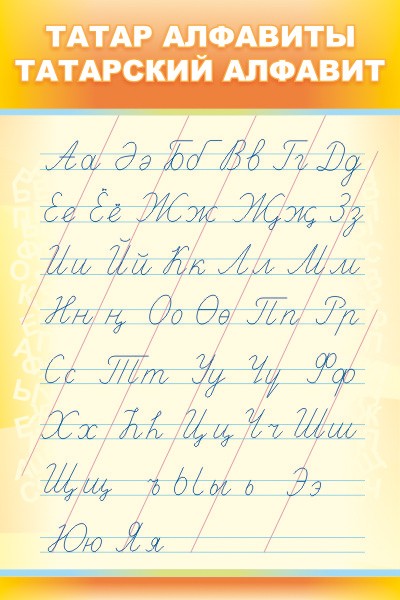 ТАТАР АЛФАВИТЫ
ТАТАРСКИЙ АЛФАВИТ
Аа Әә Бб Вв Гг Дд
Ее Ёё Жж Җҗ Зз
Ии Йй Кк Лл Мм
Нн ң Оо Өө Пп Рр
Сс Тт Уу Үү Фф
Хх Һһ Цц Чч Шш
Щщ ъ Ыы ь Ээ
Юю Яя